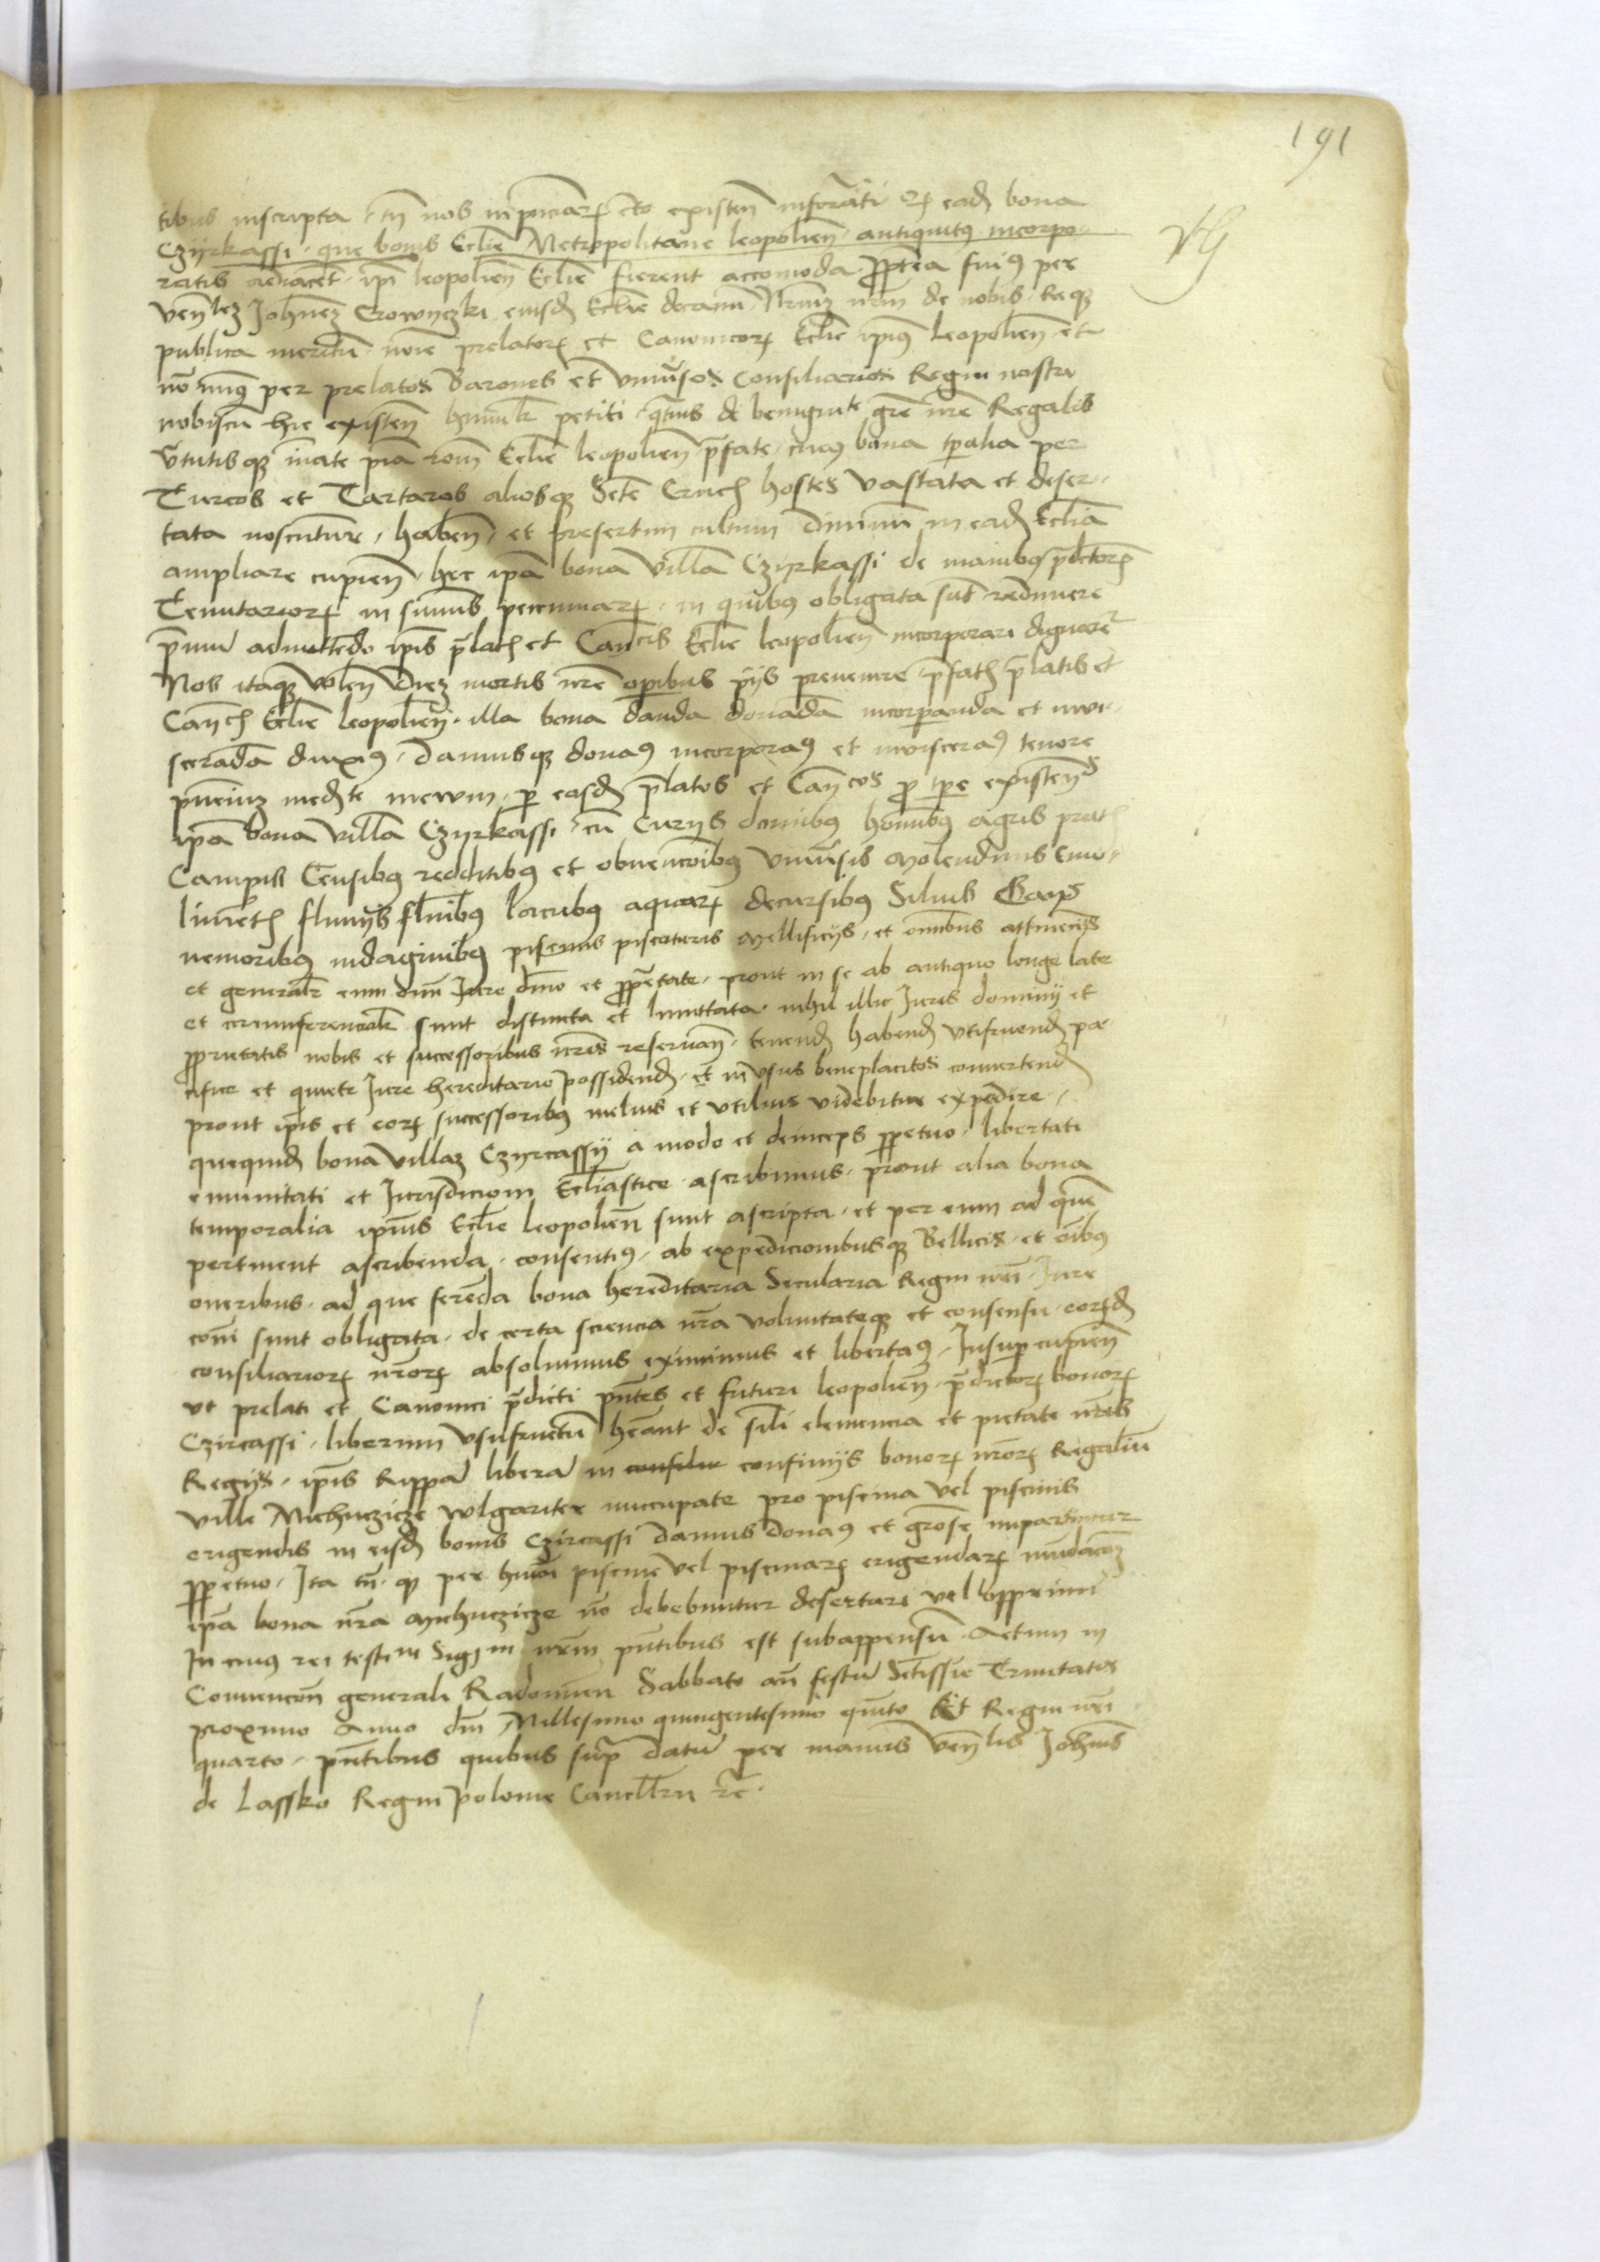 191
tibus inscripta, tn nos existen informati qz eadz bona
Czyrkassi, que bonis Ecclie Metropolitane leopolien antiquitus incorpo-
ratis adiacent, ipi leopolien Ecclie fierent accomoda, propterea fuimus per
Johnez Crownczki eiusdz Ecclie decanu de nobis, Req
publica meritu noie prelatorz et Canonicorz Ecclie ipius leopolien et
no minus per prelatos Barones et universos Consiliarios Regni nostri
nobiscu hic existen humilr petiti, de benignite gre nre Regalis
leopolien prefate, cuius bona tpalia per
Turcos et Tartaros aliosq Scte Crucis hostes vastata et deser-
tata noscuntur, haben, et presertim cultum diuinu in eadz Ecclia
ampliare cupien, hec ipa bona villa Czyrkassi de manibus predictorz
Tenutariorz in summis pecuniarz, in quibus obligata sut redimere
admittedo ipis prelatis et Canicis Ecclie leopolien incorporari dignaremr
Nos itaq volen diez mortis nre opibus pijs prevenire, prefatis prelatis et
Canicis Ecclie leopolien, illa bona danda donada incorporanda et invi-
scerada duximus, Damusq donamus incorporamus et invisceramus tenore
pnciuz medte, per eosdz prelatos et Canicos pro tpe existens
ipa bona villa Czyrkassi, cu Curijs domibus hominibus agris pratis
Campis Censibus redditibus et obvencoibus universis molendinis emo-
limetis fluvijs fluminibus lacubus aquarz decursibus Silvis
nemoribus indaginibus piscinis piscaturis mellificijs, et omnibus attinencijs
et generalr cum omi Jure dnio et proprietate, prout in se ab antiquo longe late
et circumferencialr sunt distincta et limittata, nihil illic Juris dominij et
proprietatis nobis et successoribus nris reservan, tenendz habendz utifruendz pa-
cifice et quiete Jure hereditario possidendz, et in usus beneplacitos convertendz
prout ipis et eorz successoribus melius et utilius videbitur expedire,
quequidz bona villaz Czyrcassij a modo et deinceps perpetuo, libertati
emunitati et Jurisdicioni Eccliastice ascribimus, prout alia bona
temporalia ipius Ecclie leopolien sunt ascripta, et per eum ad quem
pertinent ascribenda, consentimus, ab expedicionibusq Bellicis, et oibus
oneribus, ad que ferenda bona hereditaria Secularia Regni nri, Jure
coni sunt obligata, de certa sciencia nra voluntateq et consensu eorzdz
consiliariorz nrorz absolvimus eximimus et libertamus, Insuper cupien
ut prelati et Canonici predicti pntes et futuri leopolien, predictorz bonorz
Czircassi, liberum usufructu heant de sili clemencia et pietate nris
Regijs, ipis Rippa libera in consilio confinijs bonorz nrorz Regaliu
ville Michczicze wlgariter nuccupate pro piscina vel piscinis
erigendis in eisdz bonis Czircassi damus donamus et impartimur
perpetuo, Ita tn q per piscine vel piscinarz erigendarz inudacoz
ipa bona nra Michczicze no debebuntur desertari vel opprimi
In cuius rei testim Sigm nrm pntibus est subappensu, Actum in
Convencon generali Radomien Sabbato an festu Sctissie Trinitatis
proximo Anno dni Millesimo quingentesimo quinto Regni nri
quarto, pntibus quibus supra datu per manus Venlis Johnis
de Lassko Regni Polonie Cancellrii etc.